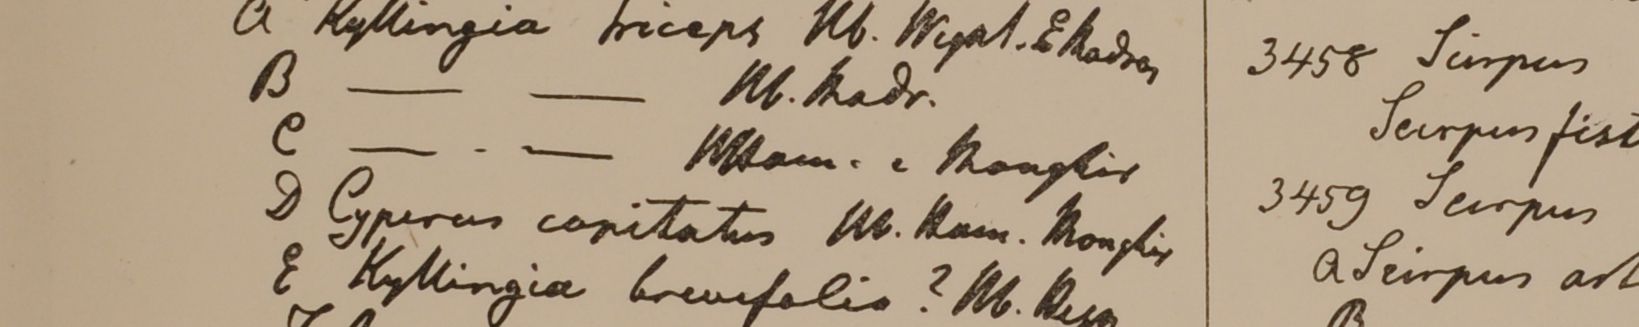 a Kyllingia triceps Hb. Wight. E Madras
B —— —— Hb. Madr.
C —— . —— HHam. e Monghir
D Cyperus capitatus Hb. Ham. Monghir
E Kyllingia brevifolia? Hb.
3458 Scirpus
Scirpus fist
3459 Scirpus
a Scirpus art
B